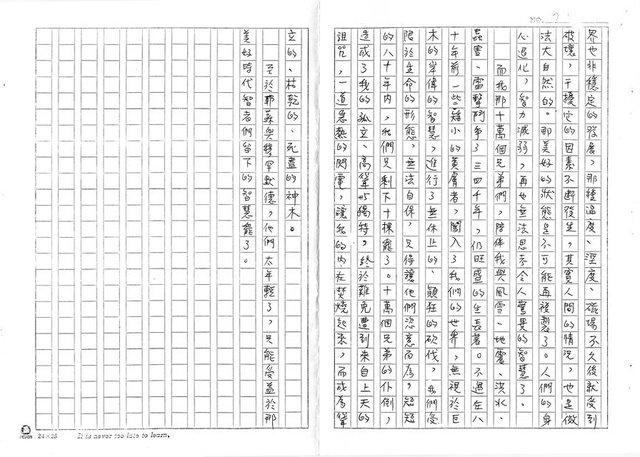 NO. 7
界也非穩定的發展,那種溫度、溼度、磁場不久後就受到
破壞,干擾它的因素不斷發生,其實人間的情況,也是倣
法大自然的。那美好的狀態是不可能再複製了。人們的身
人退化,智力減弱,再也無法思考令人驚畏的智慧了。
而我那十萬個兄弟們,陪伴我與風雪、地震、洪水、
蟲害、雷擊鬥爭了三四千年,仍旺盛的生長著。不過在八
十年前,一些矮小的黃膚者,闖入了我們的世界,無視於巨
木的岸偉的智慧,進行了無休止的、顛狂的砍伐,我們受
限於生命的形態,無法自保,只得讓他們恣意而為,短短
的八十年內,我們只剩下十棵罷了。十萬個兄弟的仆倒,
造成了我的孤立、高聳的獨特,終於難免遭到來自上天的
詛咒,一道急熱的閃電,讓我的內在焚燒起來,而成為聳
立的、枯乾的、死盡的神木。
至於耶穌與穆罕默德,他們太年輕了,只能受益於那
美好時代智者們留下的智慧罷了。
24×25 It is never too late to learn.